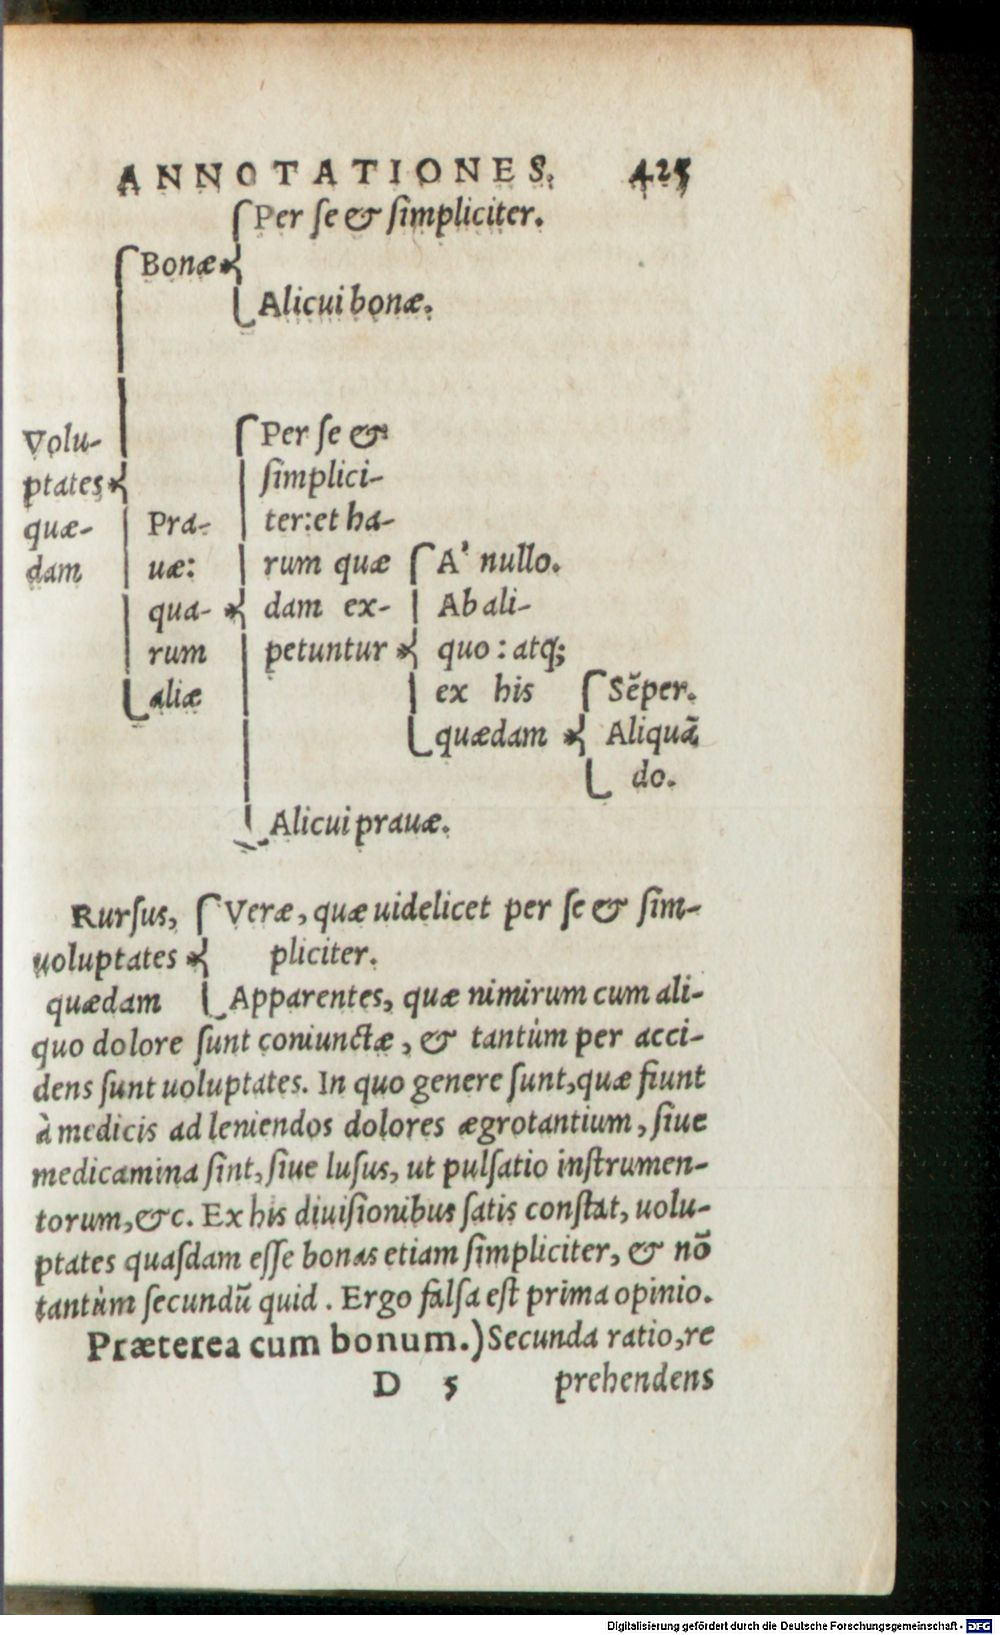 ANNOTATIONES. 425
Per ſe & ſimpliciter.
Bonæ
Alicui bonæ.
Volu-
ptates
quæ-
dam
Pra-
uæ:
qua-
rum
aliæ
Per ſe &
ſimplici-
ter: et ha-
rum quæ
dam ex-
petuntur
A' nullo.
Ab ali-
quo: atq;
ex his
quædam
Sēper.
Aliquā
do.
Alicui prauæ.
Rurſus,
uoluptates
quædam
Veræ, quæ uidelicet per ſe & ſim-
pliciter.
Apparentes, quæ nimirum cum ali-
quo dolore ſunt coniunctæ, & tantùm per acci-
dens ſunt uoluptates. In quo genere ſunt, quæ fiunt
à medicis ad leniendos dolores ægrotantium, ſiue
medicamina ſint, ſiue luſus, ut pulſatio inſtrumen-
torum, &c. Ex his diuiſionibus ſatis conſtat, uolu-
ptates quaſdam eſſe bonas etiam ſimpliciter, & nō
tantùm ſecundū quid. Ergo falſa eſt prima opinio.
Præterea cum bonum.) Secunda ratio, re
D 5 prehendens
Digitalisierung gefördert durch die Deutsche Forschungsgemeinschaft - DFG